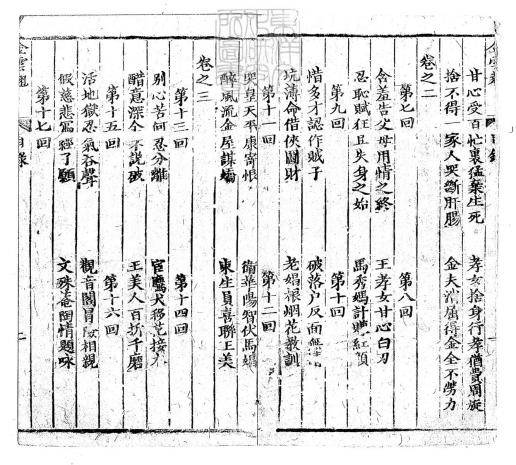 金雲翹 目錄
甘心受百忙裏猛棄生死 孝女捨身行孝猶費周旋
捨不得一家人哭斷肝腸 金夫濟屬得金全不勞力
卷之二
第七回 第八回
含羞告父母用情之終 王孝女甘心白刃
忍恥賦狂且失身之始 馬秀媽計賺紅顏
第九回 第十回
惜多才認作賊子 破落户反面無
坑薄命借俠圖財 老娼根烟花教訓
第十一回 第十二回
哭皇天平康寄恨 衛華陽智伏馬娼
醉風流金屋謀嬌 東生員喜聯王美
卷之三
第十三回 第十四回
別心苦何忍分離 宦鷹犬移花接木
醋意深全不說破 王美人百折千磨
第十五回 第十六回
活地獄忍氣吞聲 觀音閣冒險相親
假慈悲寫經了願 文殊菴陶情題詠
第十七回
金雲翹 目錄